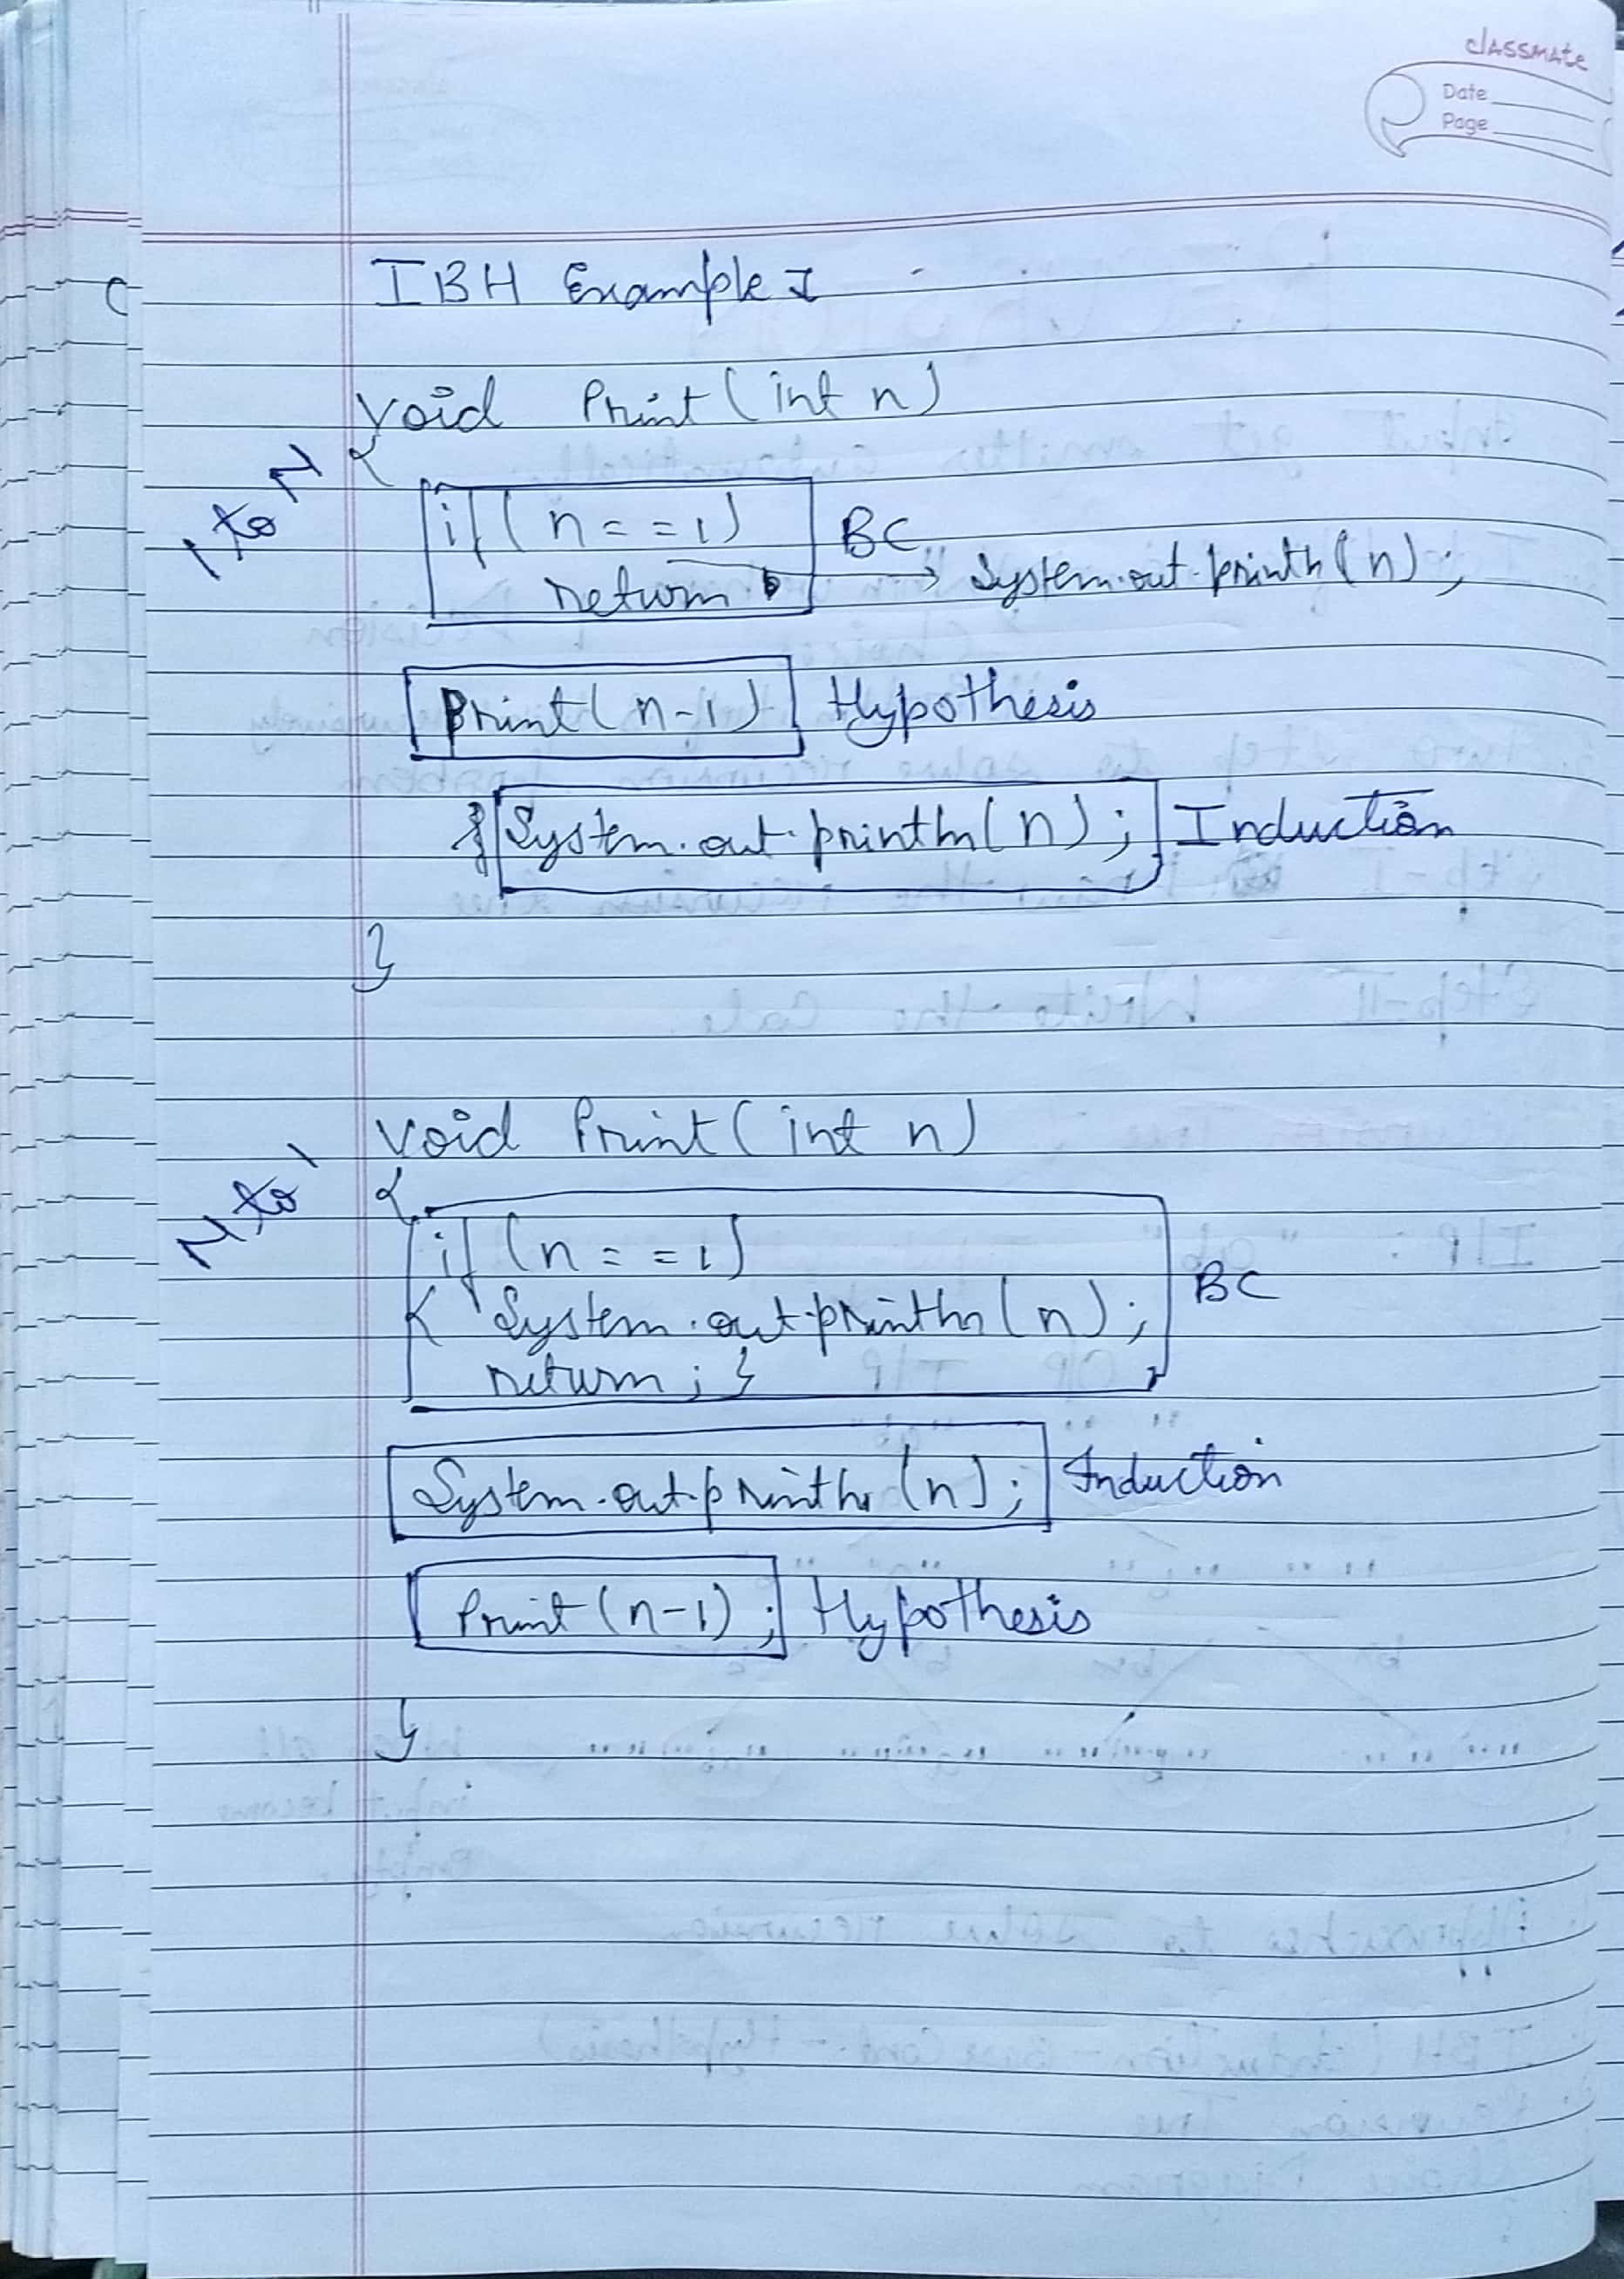 classmate
Date
Page
IBH Example I
void Print(int n)
1 to N
{
if (n==1) BC
return → System.out.println(n);
Print(n-1) Hypothesis
System.out.println(n); Induction
}
void Print(int n)
N to 1
{
if (n==1)
{ System.out.println(n); BC
return; }
System.out.println(n); Induction
Print(n-1); Hypothesis
}